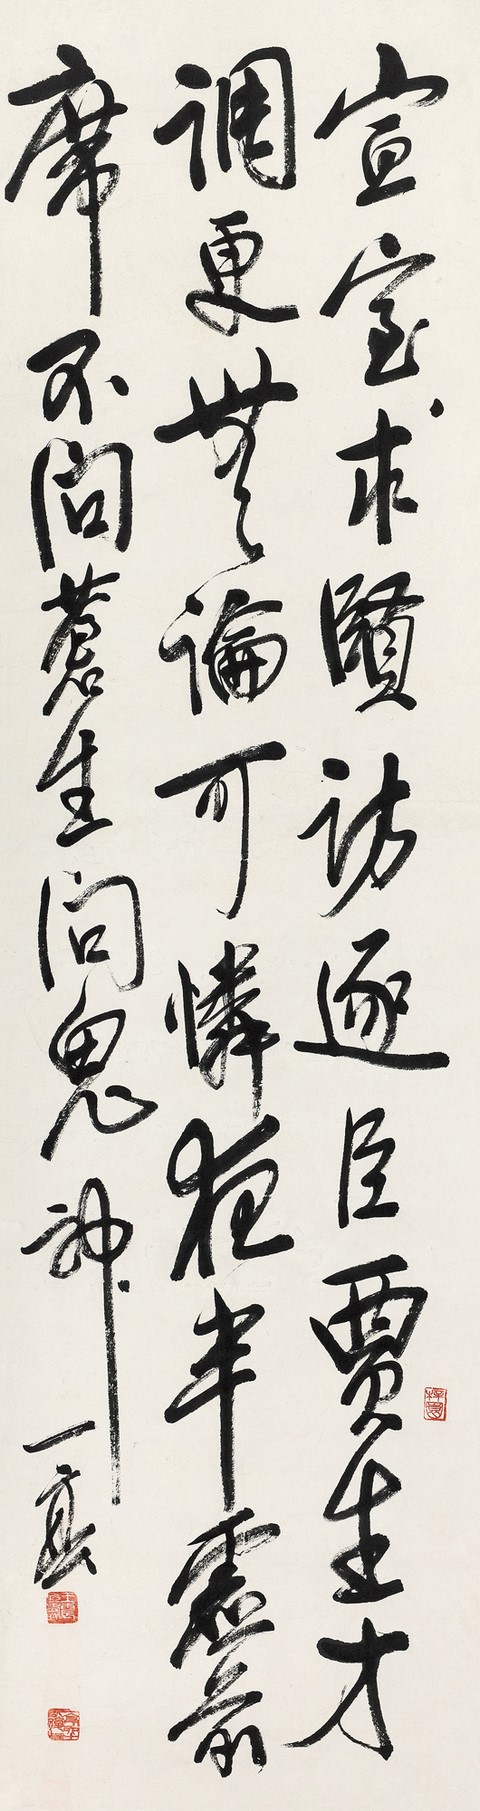 宣室求賢訪逐臣賈生才
調更無論可憐夜半虛前
席不問蒼生問鬼神